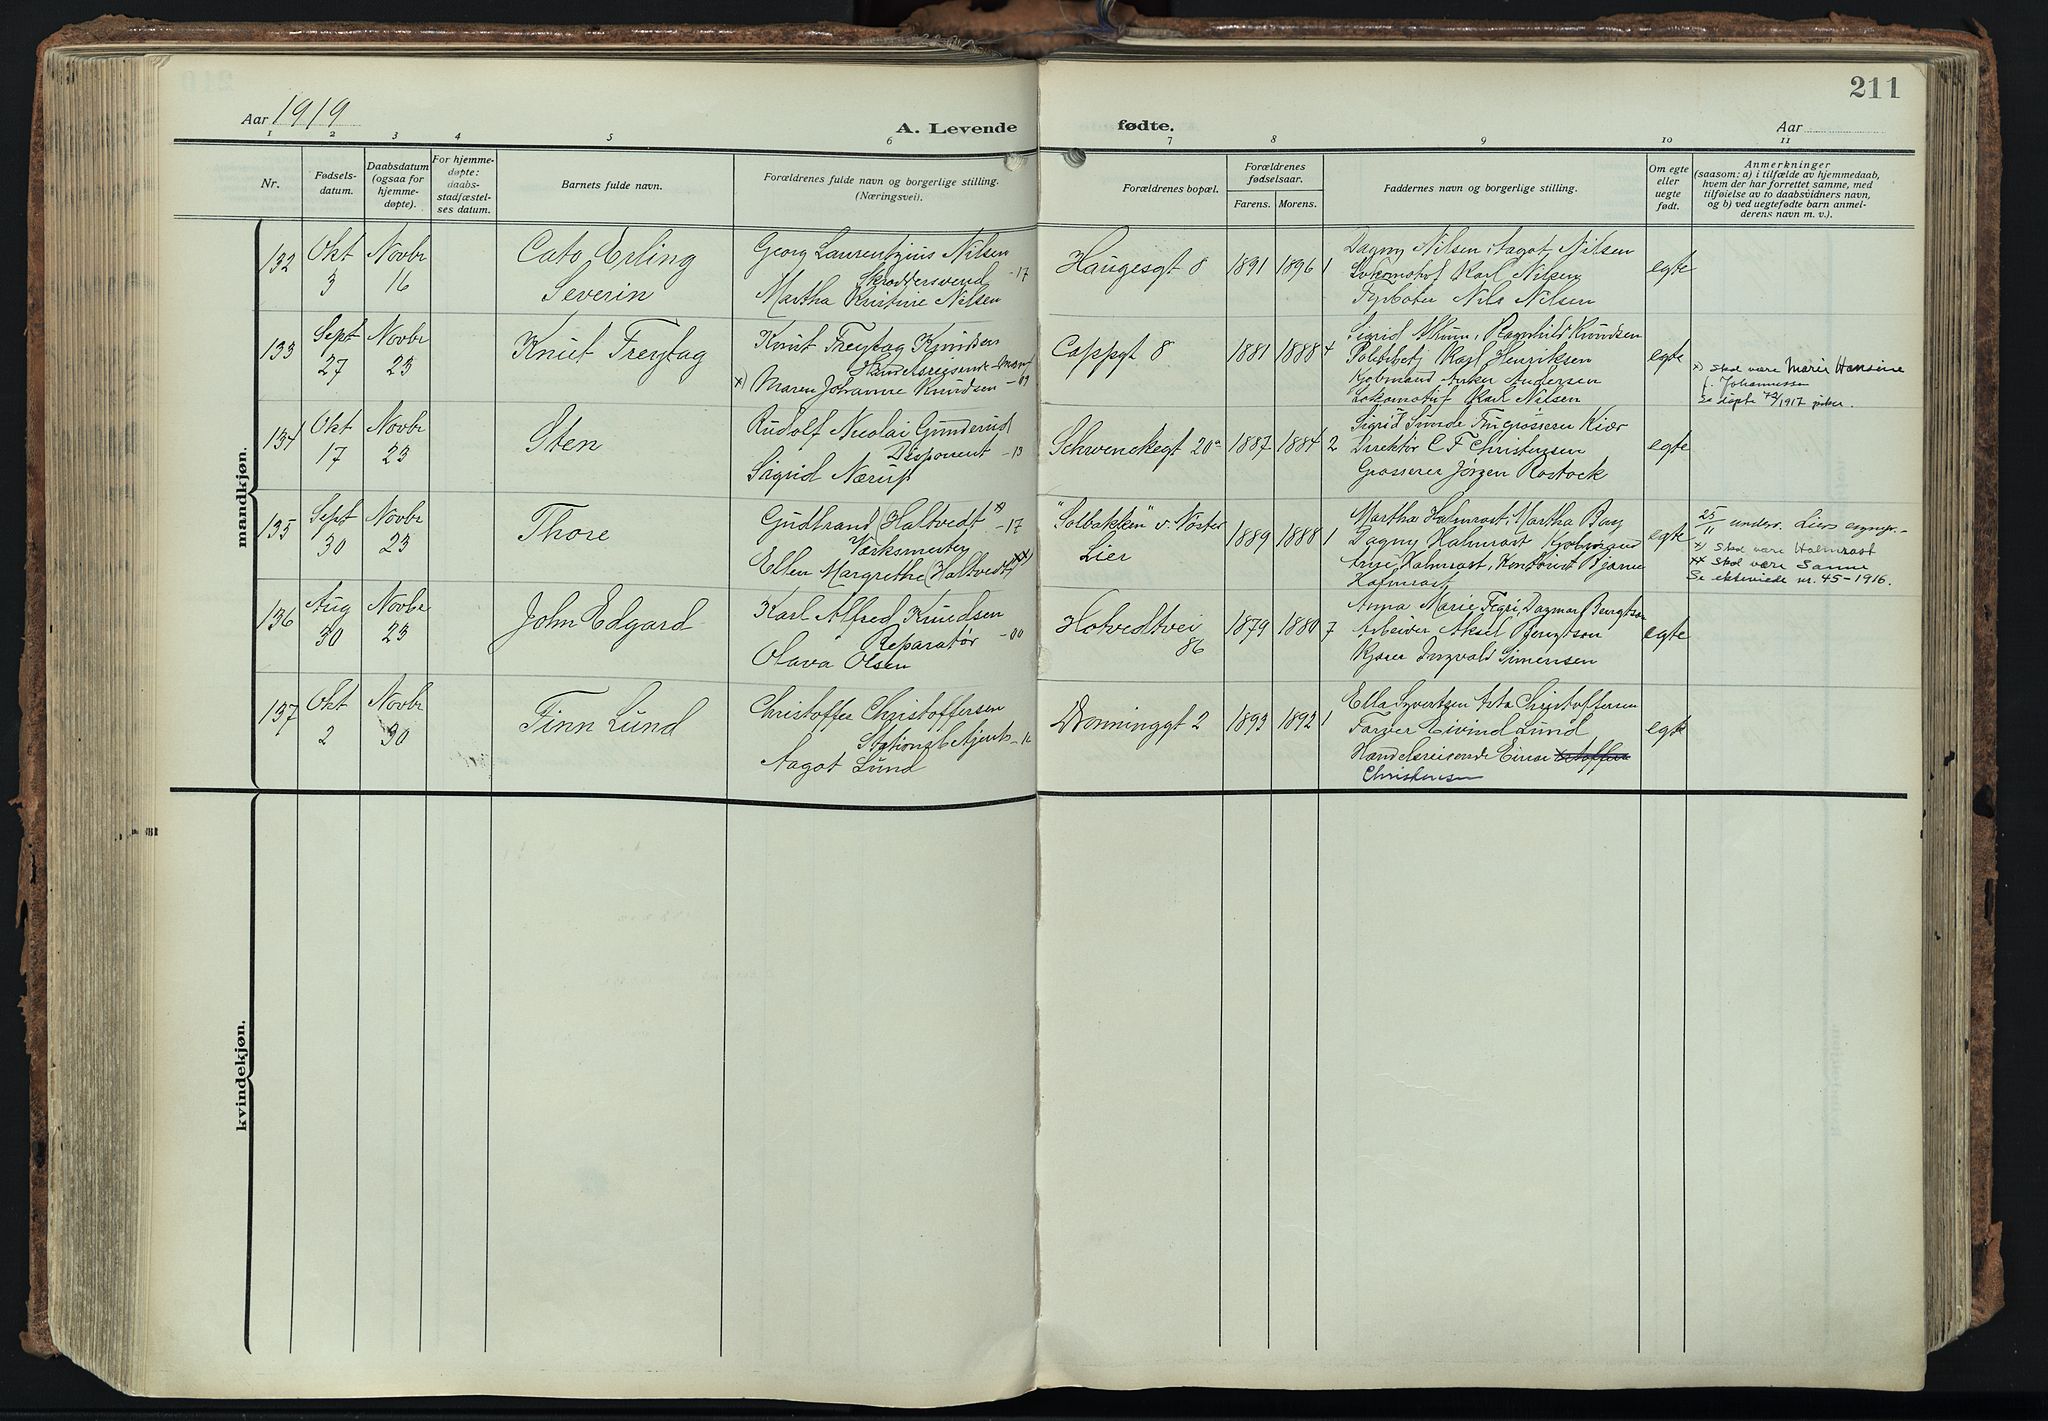 211
Aar 1919
A. Levende fødte.
Aar
1 2 3 4 5 6 7 8 9 10 11
Nr.
Fødsels-
datum.
Daabsdatum
(ogsaa for
hjemme-
døpte).
For hjemme-
døpte:
daabs-
stadfæstel-
ses datum.
Barnets fulde navn.
Forældrenes fulde navn og borgerlige stilling.
(Næringsvei).
Forældrenes bopæl.
Forældrenes
fødselsaar.
Farens. Morens.
Faddernes navn og borgerlige stilling.
Om egte
eller
uegte
født.
Anmerkninger
(saasom: a) i tilfælde av hjemmedaab,
hvem der har forrettet samme, med
tilføielse av to daabsvidners navn,
og b) ved uegtefødte barn anmel-
derens navn m. v.).
mandkjøn.
132
Okt
3
Novbr
16
Cato Erling
Severin
Georg Laurentzius Nilsen
Skræddersvend -17
Martha Kristine Nilsen
Haugesgt 8
1891
1896 1
Dagny Nilsen, Aagot Nilsen
Lokomotof Karl Nilsen
Fyrbøter Nils Nilsen
egte
133
Sept
27
Novbr
23
Knut Freytag
Knut Freytag Knudsen
Handelsreisende
x) Maren Johanne Knudsen -09
Cappgt 8
1881
1888 4
Sigrid Thun, Ragnhild Knudsen
Politibetj Karl Henriksen
Kjøbmand Anker Andersen
Lokomotof Karl Nilsen
egte
x) skal være Marie Hansine
f. Johannessen
se døpte 72/1917 piker.
134
Okt
17
Novbr
23
Sten
Rudolf Nicolai Gunderud
Disponent -13
Sigrid Nærup
Schwenckegt 20a
1887
1884 2
Sigrid Sunde Fru grosserer Kiær
Direktør C F Christensen
Grosserer Jørgen Rostock
egte
135
Sept
30
Novbr
23
Thore
Gudbrand (Haltvedt x)
Værksmester -17
Ellen Margrethe (Haltvedt) xx)
"Solbakken" v. Nøste
Lier
1889
1888 1
Martha Halmrast, Martha Berg
Dagny Halmrast
Arne Halmrast, Kontorist Bjarne
Halmrast
egte
25/11 underr. Liers
x) skal være Halmrast
xx skal være Sanne
Se ekteviede nr. 45-1916.
136
Aug
30
Novbr
23
John Edgard
Karl Alfred Knudsen
Reparatør -00
Olava Olsen
Hotvedtvei
86
1879
1880 7
Anna Marie Fegri, Dagmar Bengtson
Arbeider Aksel Bengtson
Kjører Ingvald Simensen
egte
137
Okt
2
Novbr
30
Finn Lund
Christoffer Christoffersen
Stationsbetjent
Aagot Lund
Dronninggt 2
1893
1892 1
Ella Syvertsen Asta Christoffersen
Farver Eivind Lund
Handelsreisende Einar
Christensen
egte
kvindekjøn.